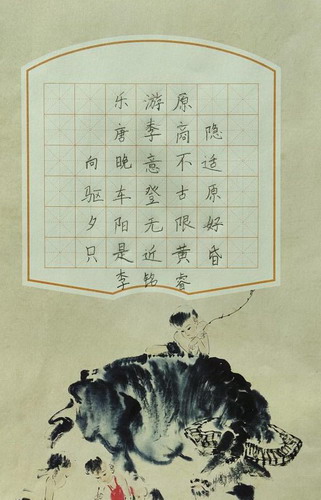 乐游原
唐李商隐
向晚意不适
驱车登古原
夕阳无限好
只是近黄昏
李铭睿